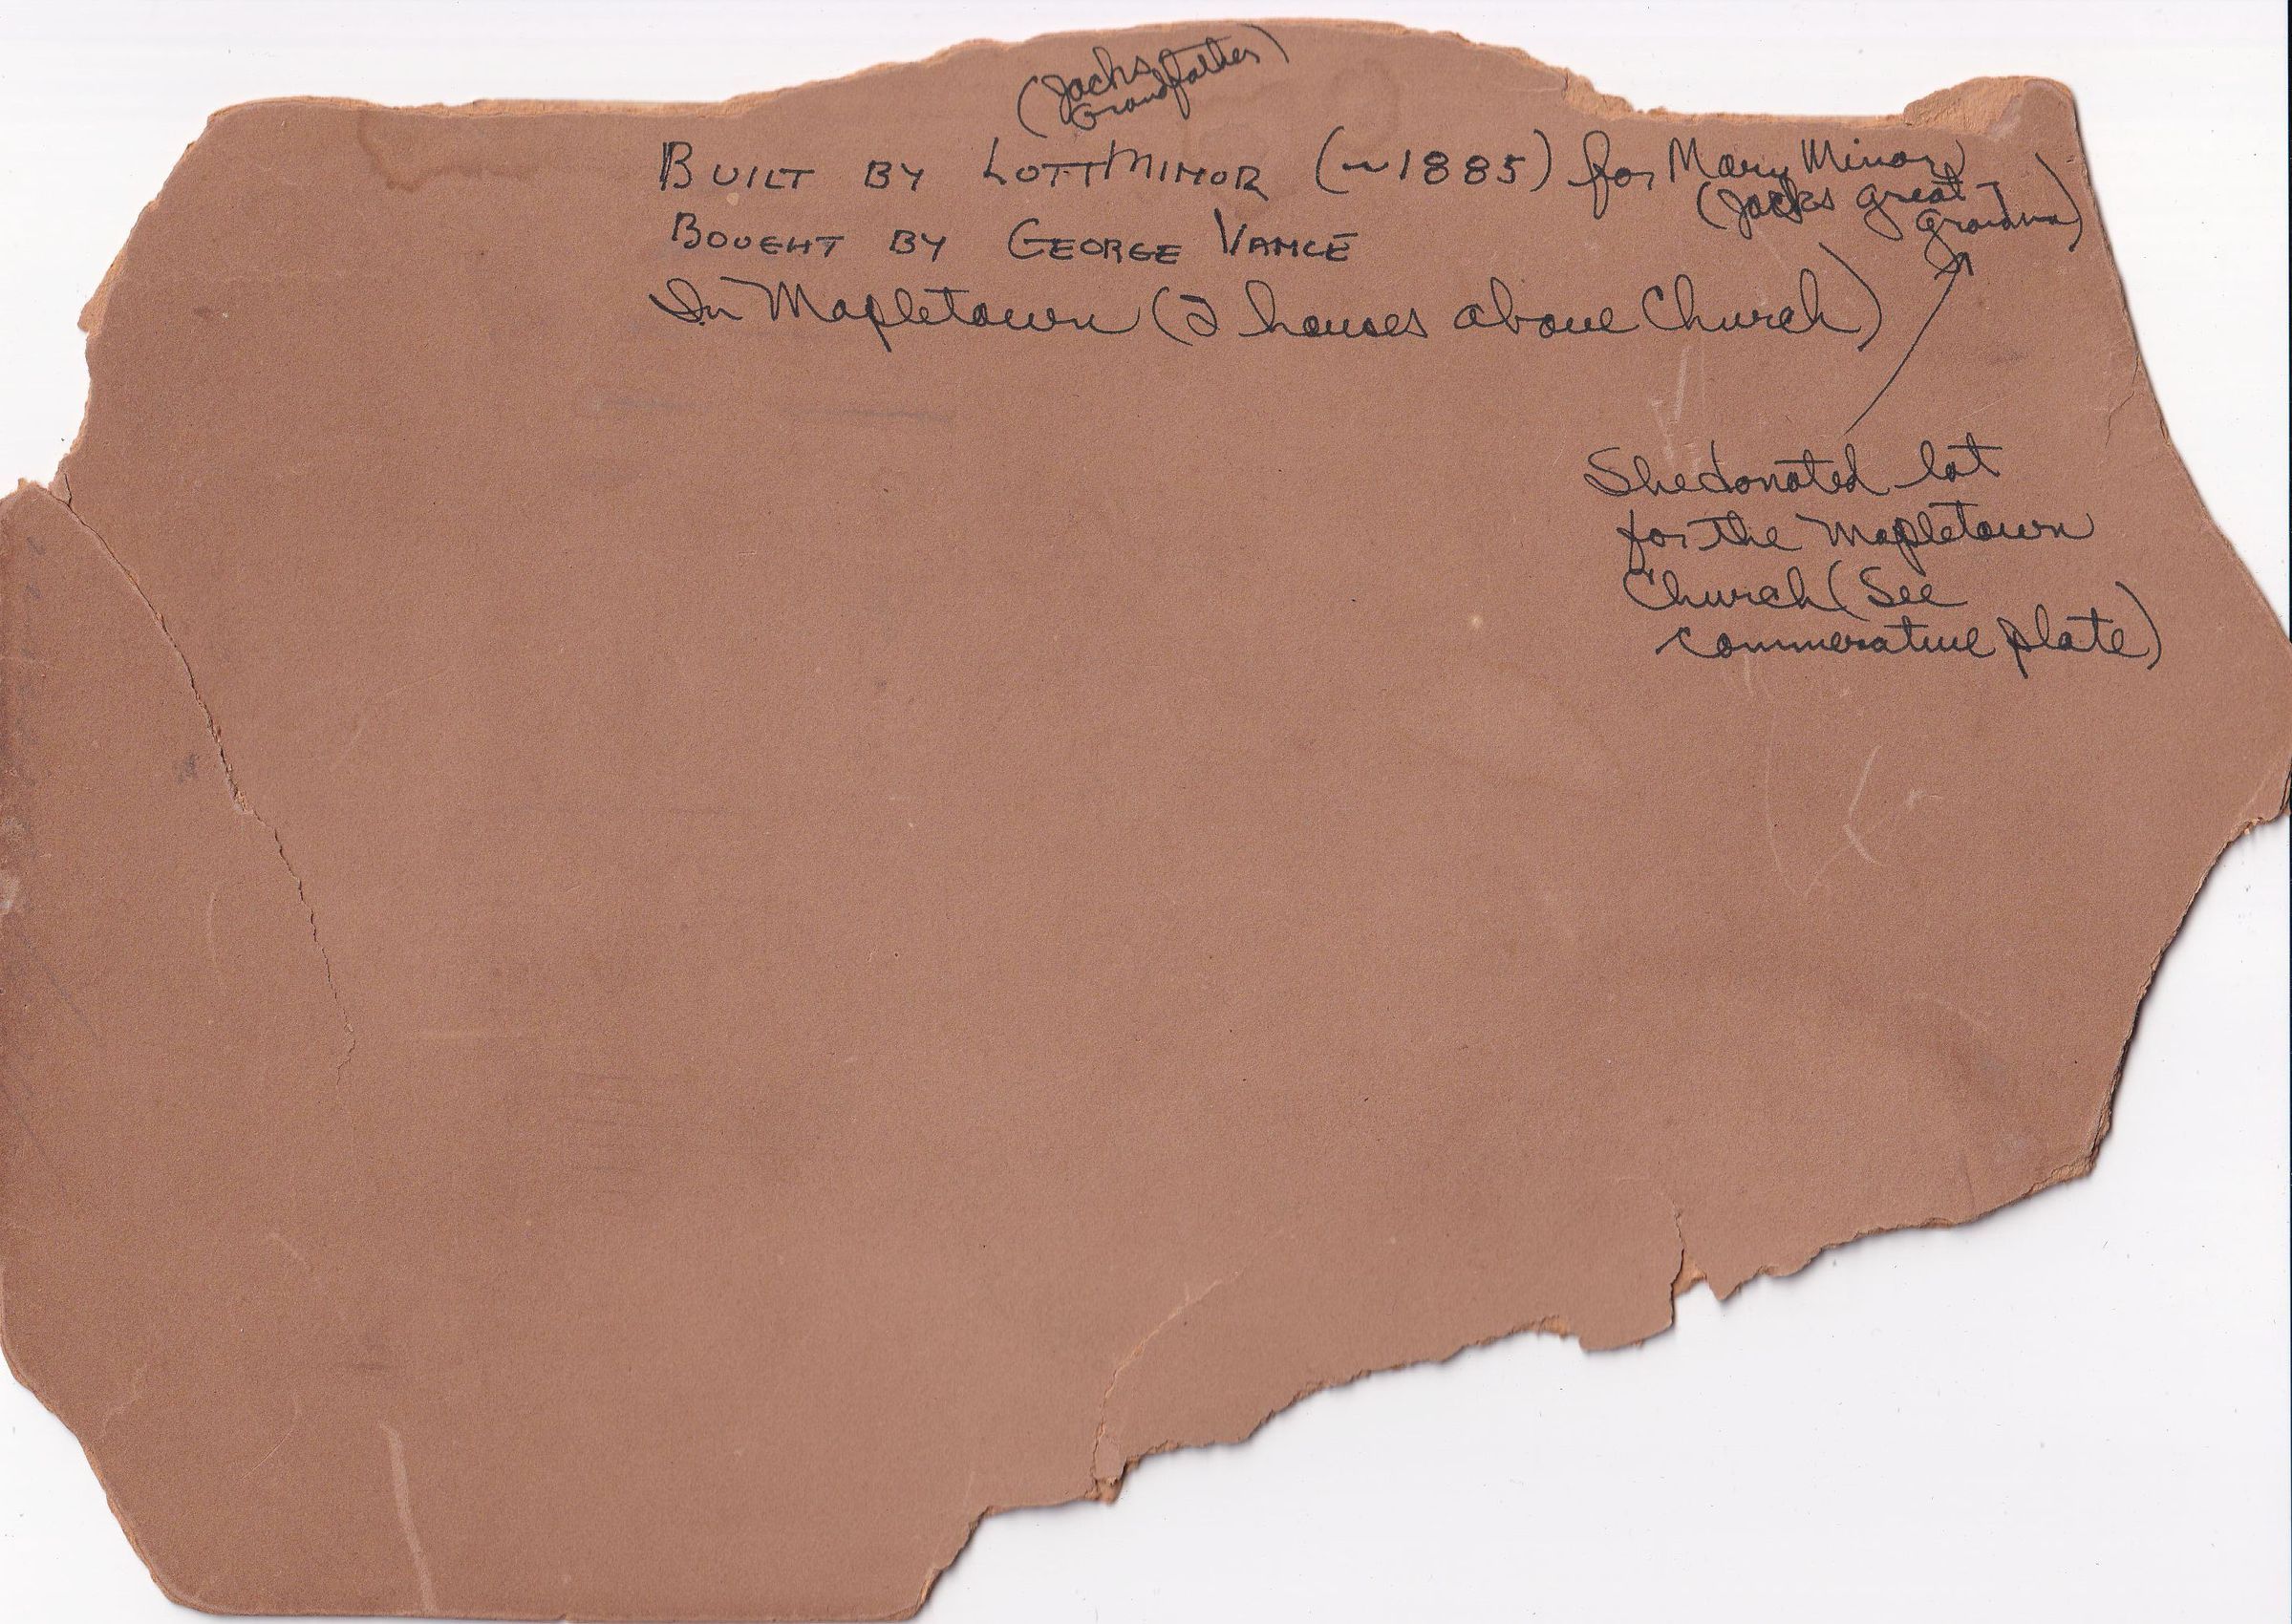 (Jacks
Grandfather)
BUILT BY LOTT MINOR (~1885) for Mary Minor
(Jacks great-
grandma)
BOUGHT BY GEORGE VANCE
In Mapletown (2 houses above Church)
She donated lot
for the Mapletown
Church (See
commerative plate)